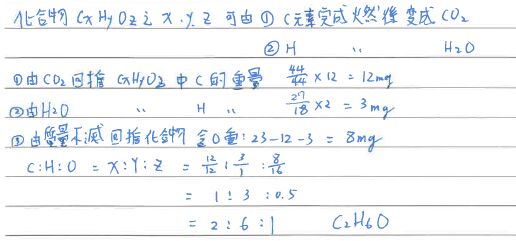 化合物 CxHyOz之 x.y.z 可由 ① C元素完成火然後 變成 CO2
② H 〃 H2O
①由CO2回推 CxHyOz 中 C 的重量 44/44 × 12 = 12mg
②由H2O 〃 H 〃 27/18 × 2 = 3mg
③由質量不滅回推化合物 含O重: 23-12-3 = 8mg
C:H:O = X:Y:Z = 12/12 : 3/1 : 8/16
= 1 : 3 : 0.5
= 2 : 6 : 1 C2H6O